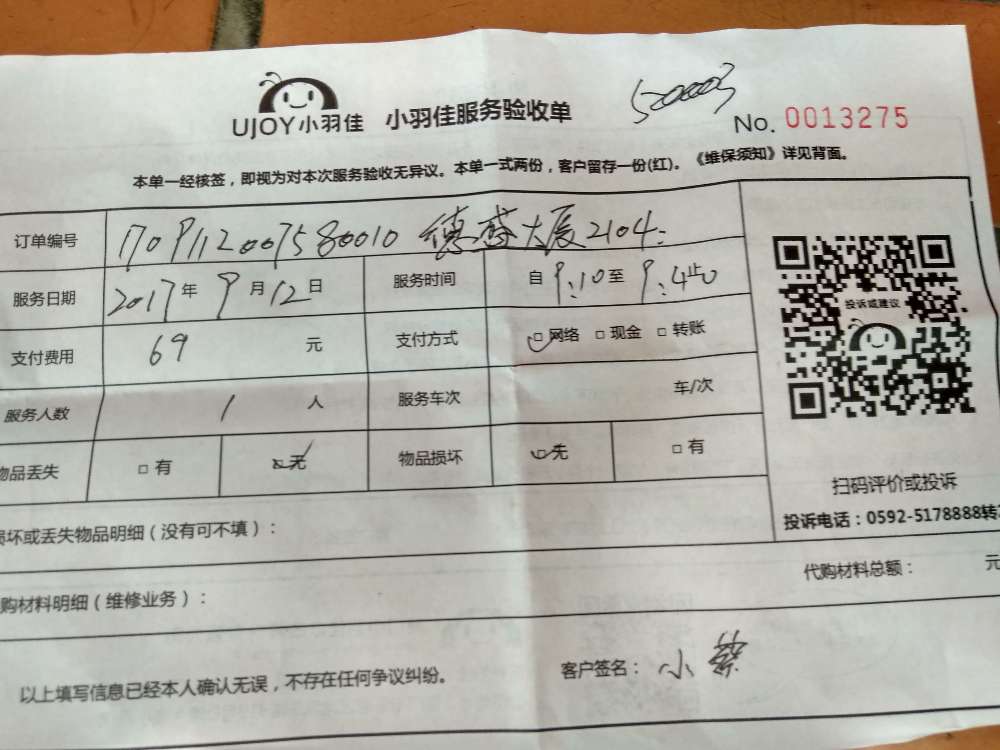 500003
UJOY小羽佳 小羽佳服务验收单 No. 0013275
本单一经核签，即视为对本次服务验收无异议。本单一式两份，客户留存一份(红)。《维保须知》详见背面。
订单编号 1709112007580010 德 大厦2104
服务日期 2017年9月12日 服务时间 自9:10至9:40止
支付费用 69 元 支付方式 □网络 □现金 □转账
投诉或建议
服务人数 1 人 服务车次 车/次
物品丢失 □有 □无 物品损坏 □无 □有
扫码评价或投诉
投诉电话：0592-5178888转
损坏或丢失物品明细（没有可不填）：
购材料明细（维修业务）： 代购材料总额： 元
以上填写信息已经本人确认无误，不存在任何争议纠纷。 客户签名：小蔡